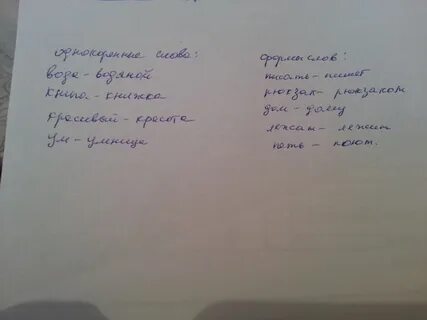 однокоренные слова:
вода - водяной
книга - книжка
красивый - красота
ум - умница
формы слов:
писать - пишет
рюкзак - рюкзаком
дом - дому
лежать - лежит
петь - поют.